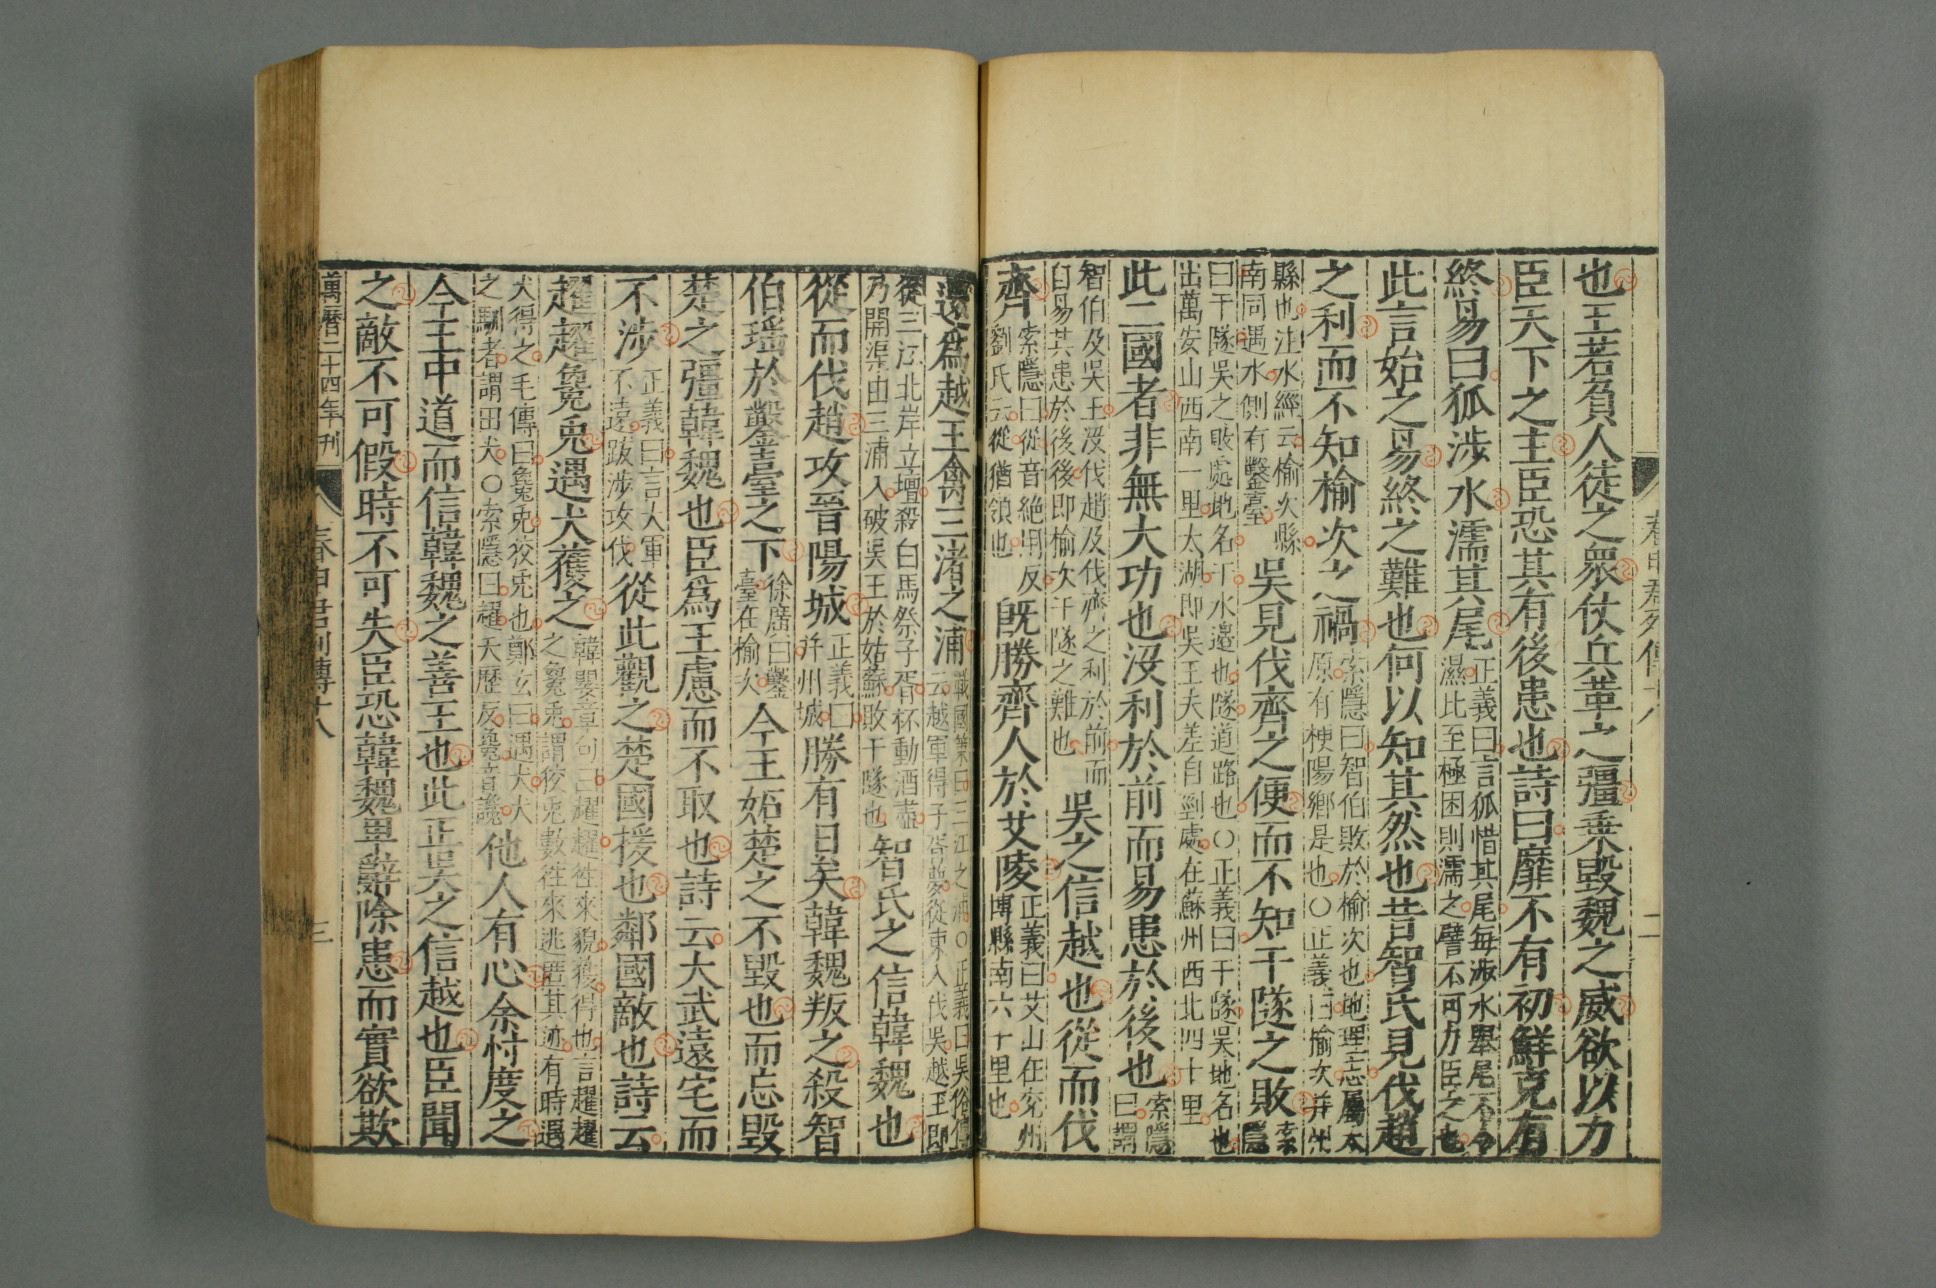 春申君列傳十八
二
也王若負人徒之衆仗兵革之彊乗毀魏之威欲以力
臣天下之主臣恐其有後患也詩曰靡不有初鮮克有
終易曰狐涉水濡其尾正義曰言狐惜其尾每涉水舉尾不令
濕比至極困則濡之譬不可力臣之也
此言始之易終之難也何以知其然也昔智氏見伐趙
之利而不知榆次之禍索隱曰智伯敗於榆次也地理志屬太
原有梗陽鄉是也○正義曰榆次并州
縣也注水經云榆次縣
南同過水側有鑿臺吳見伐齊之便而不知干隧之敗索
隱
曰干隧吳之敗處地名干水邉也隧道路也○正義曰干隧吳地名也
出萬安山西南一里太湖即吳王夫差自剄處在蘇州西北四十里
此二國者非無大功也沒利於前而易患於後也索隱
曰謂
智伯及吳王沒伐趙及伐齊之利於前而
自易其患於後後即榆次干隧之難也吳之信越也從而伐
齊索隱曰從音絕用反
劉氏云從猶領也旣勝齊人於艾陵正義曰艾山在兗州
博縣南六十里也
還爲越王禽三渚之浦戰國策曰三江之浦○正義曰吳俗傳
云越軍得子胥夢從東入伐吳越王即
從三江北岸立壇殺白馬祭子胥杯動酒盡
乃開渠由三浦入破吳王於姑蘇敗干隧也智氏之信韓魏也
從而伐趙攻晉陽城正義曰
并州城勝有日矣韓魏叛之殺智
伯瑤於鑿臺之下徐廣曰鑿
臺在榆次今王妬楚之不毀也而忘毀
楚之彊韓魏也臣爲王慮而不取也詩云大武遠宅而
不涉正義曰言大軍
不遠跋涉攻伐從此觀之楚國援也鄰國敵也詩云
趯趯毚兎遇犬獲之韓嬰章句曰趯趯徃來貌獲得也言趯趯
之毚兎謂狡兎數徃來逃匿其迹有時遇
犬得之毛傳曰毚兎狡兎也鄭玄曰遇犬犬
之馴者謂田犬○索隱曰趯天歷反毚音讒他人有心余忖度之
今王中道而信韓魏之善王也此正吳之信越也臣聞
之敵不可假時不可失臣恐韓魏卑辭除患而實欲欺
萬曆二十四年刊
春申君列傳十八
三